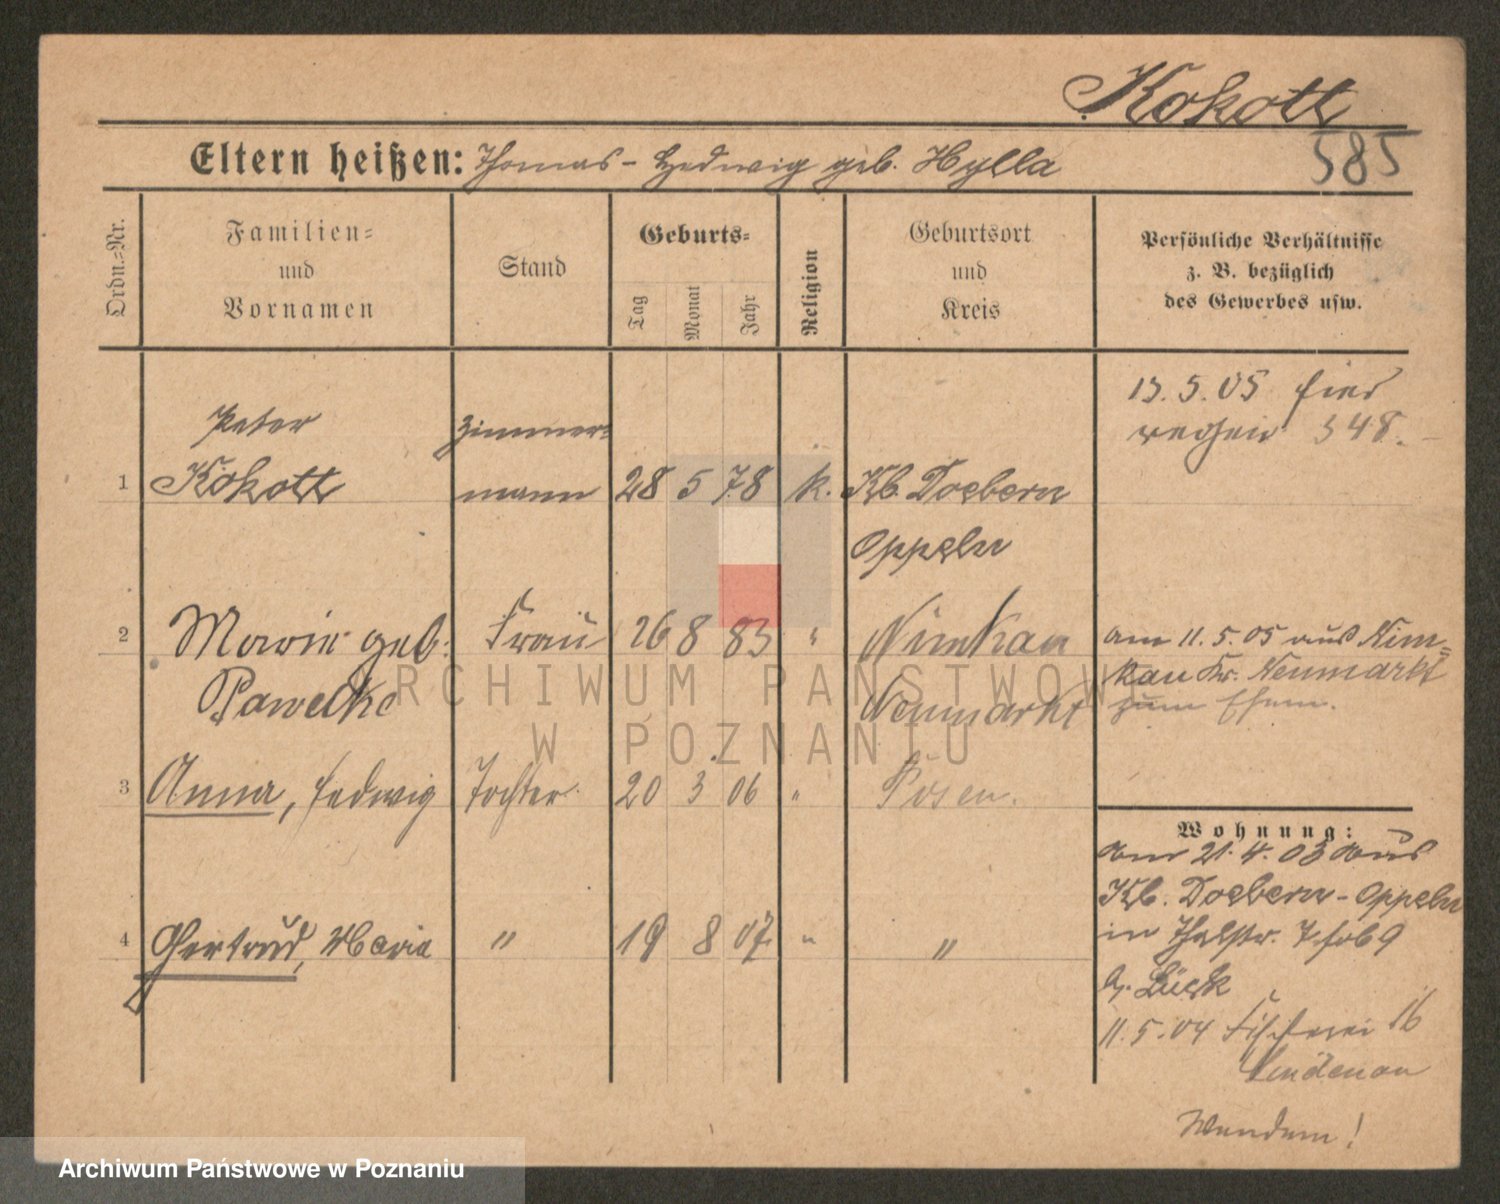 Kokott
585
Eltern heißen: Thomas - Hedwig geb. Hylla
Ordn.=Nr.
Familien=
und
Vornamen
Stand
Geburts=
Tag
Monat
Jahr
Religion
Geburtsort
und
Kreis
Persönliche Verhältnisse
z. B. bezüglich
des Gewerbes usw.
Peter
1 Kokott
Zimmer=
mann
28 5 78 k. Kl. Doebern
Oppeln
13. 5. 05 hier
wegen 348.
2 Marie geb.
Pawelke
Frau 26 8 83 " Nimkau
Neumarkt
am 11. 5. 05 aus Nim=
kau Kr. Neumarkt
zum Ehem.
3 Anna, Hedwig Tochter 20 3 06 " Posen.
4 Gertrud, Maria " 19 8 07 " "
Wohnung:
am 21. 4. 03 aus
Kl. Doebern - Oppeln
in Thalstr. 7
b. Lück
11. 5. 04 Fischerei 16
Wenden!
ARCHIWUM PAŃSTWOWE
W POZNANIU
Archiwum Państwowe w Poznaniu